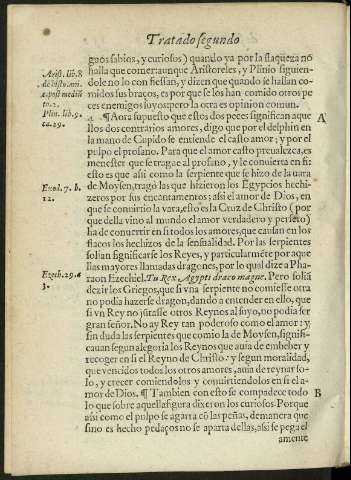 Tratado segundo
guos sabios, y curiosos) quando ya por la flaqueza no
halla que comer aunque Aristoteles, y Plinio siguien-
dole no lo confiessan, y dizen que quando se hallan co-
midos sus braços, es por que se los han comido otros pe
ces enemigos suyos pero la otra es opinion comun.
Arist. lib. 8
de histo. ani.
Plin. lib. 9.
ca. 29.
¶ Aora supuesto que estos dos peces significan aque
llos dos contrarios amores, digo que por el delphin en
la mano de Cupido se entiende el casto amor; y por el
pulpo el profano. Para que el amor casto preualezca, es
menester que se trague al profano, y le conuierta en si:
esto es que assi como la serpiente que se hizo de la vara
de Moysen, tragó las que hizieron los Egypcios hechi-
zeros por sus encantamentos; assi el amor de Dios, en
que se conuirtio la vara, esto es la Cruz de Christo (por
que della vino al mundo el amor verdadero y perfeto)
ha de conuertir en si todos los amores, que causan en los
flacos los hechizos de la sensualidad. Por las serpientes
solian significarse los Reyes, y particularmẽte por aque
llas mayores llamadas dragones, por lo qual dize a Pha-
raon Ezechiel. Tu Rex Ægypti draco magne. Pero soliã
dezir los Griegos, que si vna serpiente no comiesse otra
no podia hazerse dragon, dando a entender en ello, que
si vn Rey no jũtasse otros Reynos al suyo, no podia ser
gran señor. No ay Rey tan poderoso como el amor: y
sin duda las serpientes que comio la de Moysen, signifi-
cauan segun alegoria los Reynos que auia de embeber y
recoger en si el Reyno de Christo: y segun moralidad,
que vencidos todos los otros amores, auia de reynar so-
lo, y crecer comiendolos y conuirtiendolos en si el a-
mor de Dios. ¶ Tambien con esto se compadece todo
lo que sobre aquella figura dixeron los curiosos. Porque
assi como el pulpo se agarra cõ las peñas, demanera que
sino es hecho pedaços no se aparta dellas, assi se pega el
amente
A
Exod. 7. b.
12.
Ezech. 29. a
3.
B